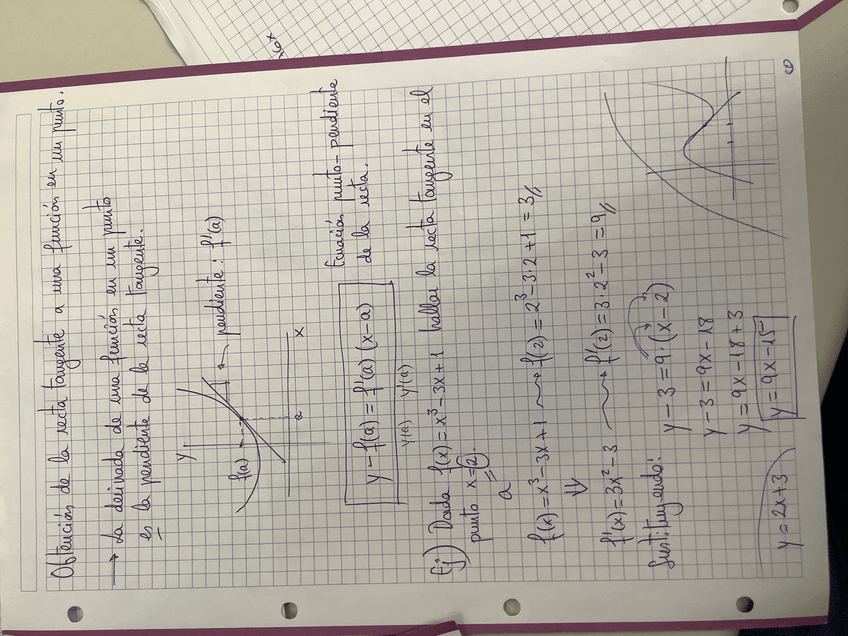 Obtención de la recta tangente a una función en un punto.
→ La derivada de una función en un punto
es la pendiente de la recta tangente.
y
f(a)
pendiente: f'(a)
a
x
y-f(a)=f'(a)(x-a)
y(a) y'(a)
Ecuación punto-pendiente
de la recta.
Ej) Dada f(x)=x³-3x+1 hallar la recta tangente en el
punto x=2.
a
f(x)=x³-3x+1 f(2)=2³-3·2+1=3//
⇓
f'(x)=3x²-3 f'(2)=3·2²-3=9//
Sustituyendo:
y-3=9·(x-2)
y-3=9x-18
y=9x-18+3
y=9x-15
y=2x+3